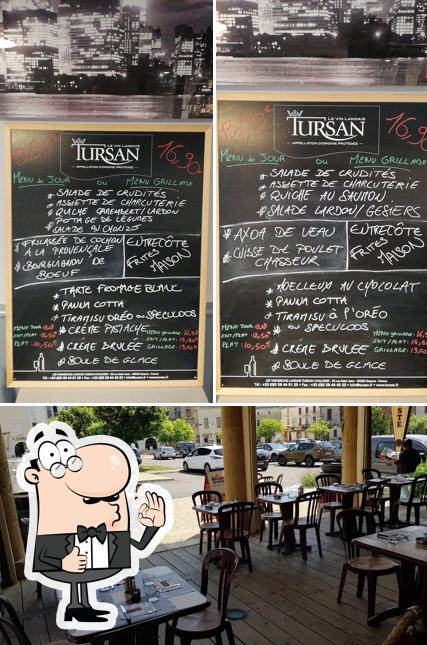 LE VIN LANDAIS
TURSAN
APPELLATION D'ORIGINE PROTÉGÉE
16,90
MENU du JOUR ou MENU GRILLADE
* SALADE DE CRUDITÉS
* ASSIETTE DE CHARCUTERIE
* QUICHE CAMEMBERT/LARDON
POTAGE DE LÉGUMES
* SALADE AU CHORIZO
* FRICASSÉE DE COCHON
À LA PROVENÇALE
* BOURGUIGNON DE
BOEUF
ENTRECÔTE
FRITES
MAISON
* TARTE FROMAGE BLANC
* PANNA COTTA
* TIRAMISU ORÉO ou SPECULOOS
* CRÈME PISTACHE
* CRÈME BRULÉE
* BOULE DE GLACE
MENU JOUR
ENT/PLAT:
PLAT: 10,50
MENU GRILLADE: 16,90
ENT/PLAT: 14,80
GRILLADE: 13,00
LE VIN LANDAIS
TURSAN
APPELLATION D'ORIGINE PROTÉGÉE
16,90
MENU du JOUR ou MENU GRILLADE
* SALADE DE CRUDITÉS
* ASSIETTE DE CHARCUTERIE
* QUICHE AU SAUMON
* SALADE LARDON/GÉSIERS
* AXOA DE VEAU
* CUISSE DE POULET
CHASSEUR
ENTRECÔTE
FRITES
MAISON
* MOELLEUX AU CHOCOLAT
* PANNA COTTA
* TIRAMISU À L'ORÉO
ou SPÉCULOOS
* CRÈME BRULÉE
* BOULE DE GLACE
MENU JOUR
ENT/PLAT:
PLAT:
MENU GRILLADE:
ENT/PLAT:
GRILLADE: 13,00